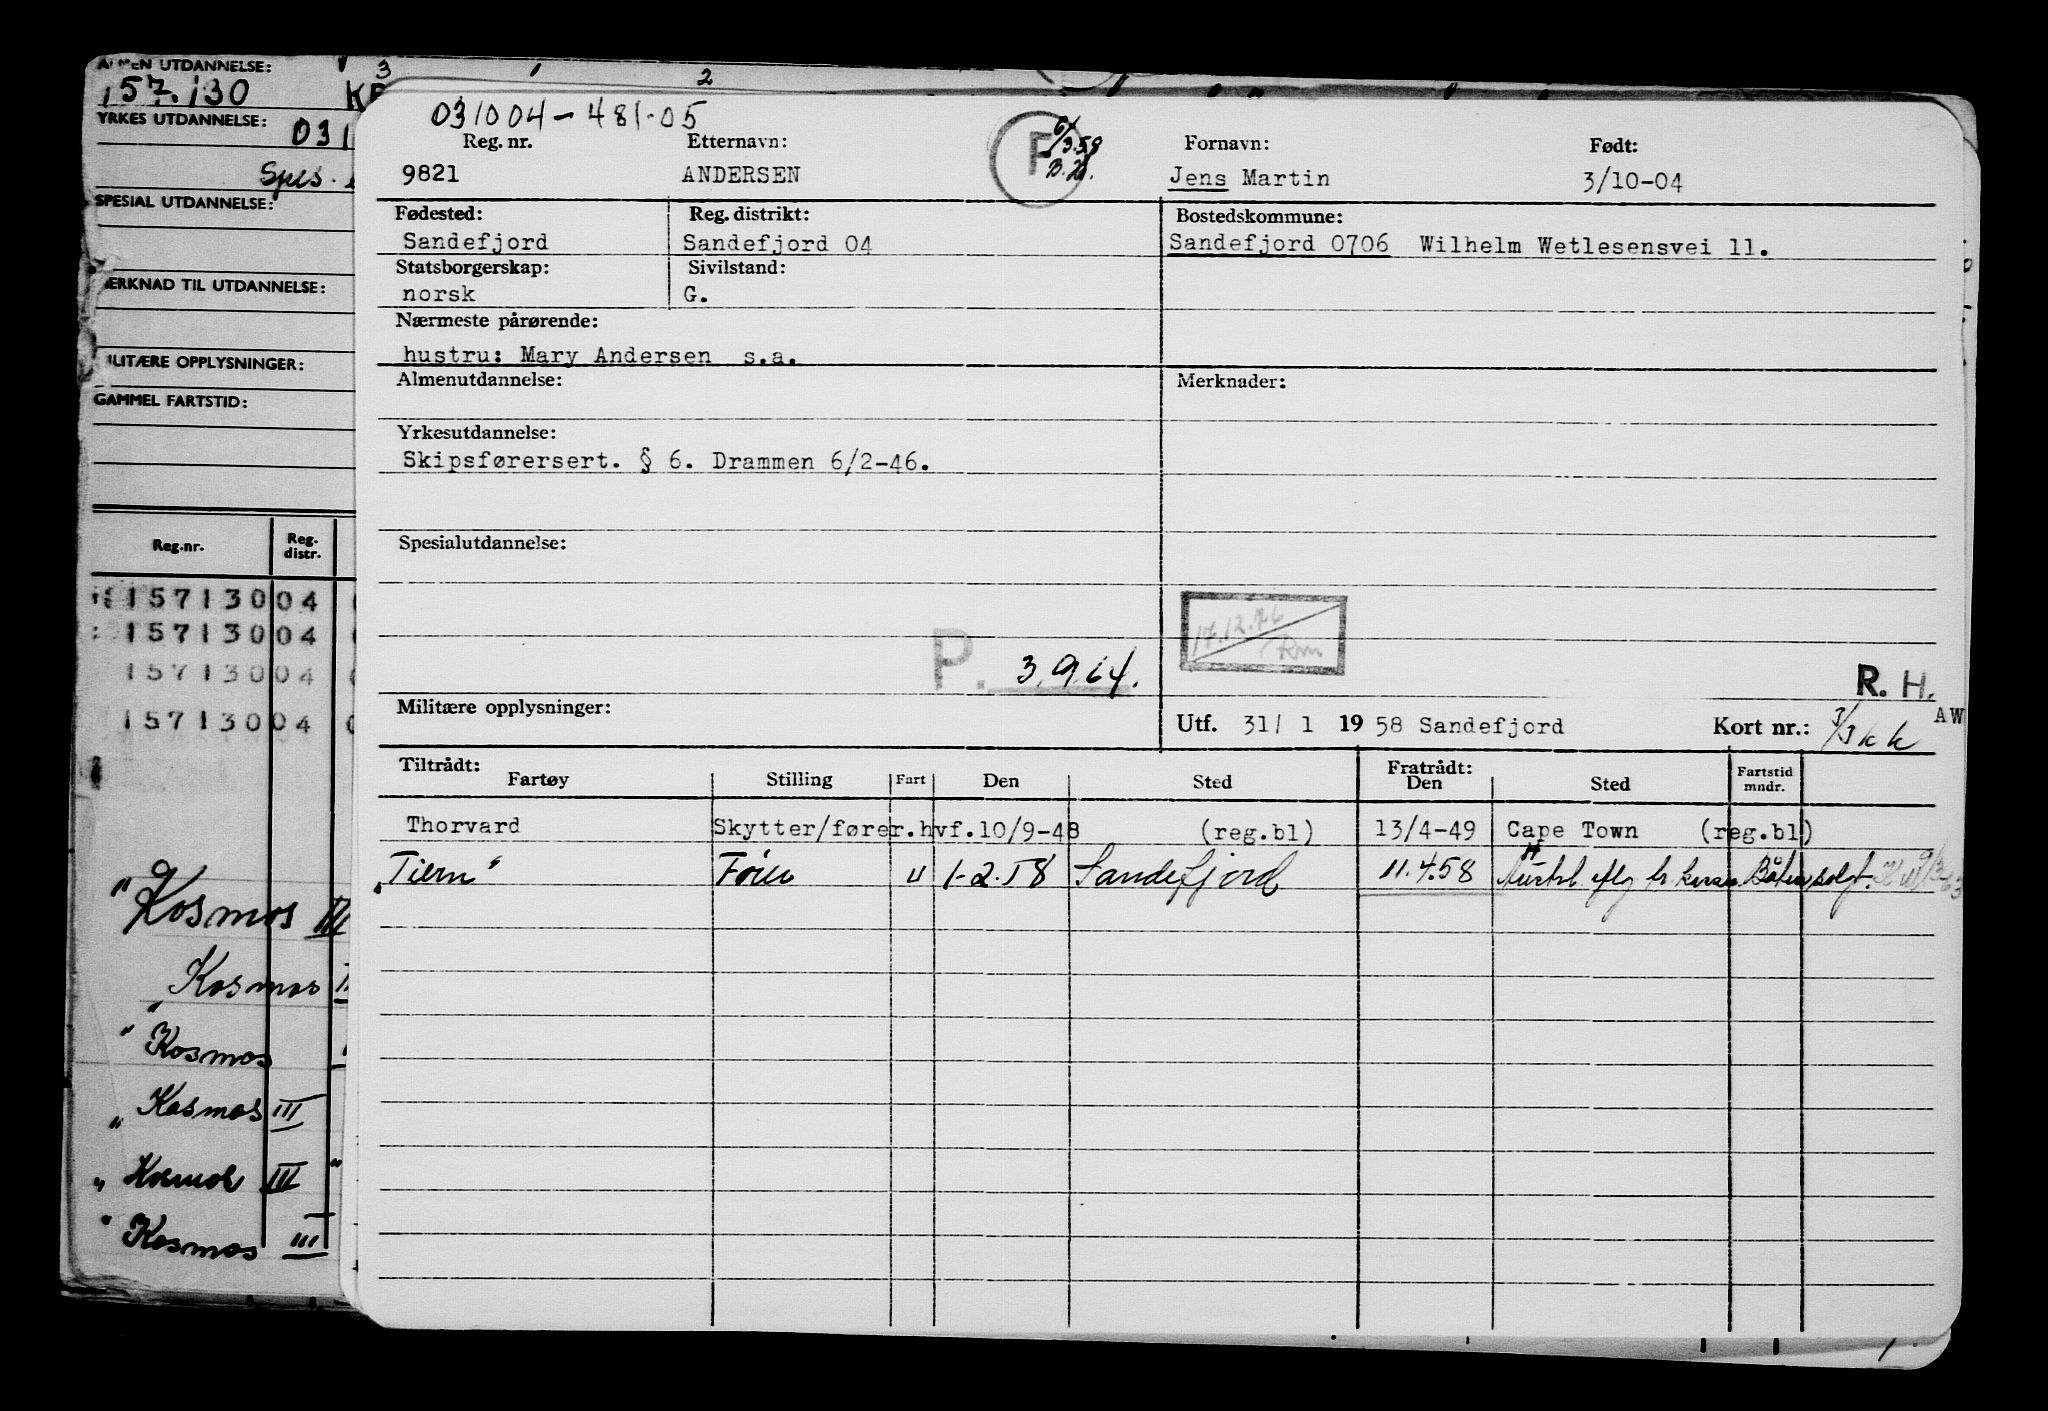 ALMEN UTDANNELSE:
3 1 2
157.130
YRKES UTDANNELSE:
031
Spes.
SPESIAL UTDANNELSE:
MERKNAD TIL UTDANNELSE:
MILITÆRE OPPLYSNINGER:
GAMMEL FARTSTID:
Reg.nr. Reg. distr.
15713004
15713004
15713004
15713004
"Kosmos III
"Kosmos
"Kosmos
"Kosmos III
"Kosmos III "
"Kosmos III
031004-481-05
Reg. nr. Etternavn: F 6/3.58 Fornavn: Født:
9821 ANDERSEN Jens Martin 3/10-04
Fødested: Reg. distrikt: Bostedskommune:
Sandefjord Sandefjord 04 Sandefjord 0706 Wilhelm Wetlesensvei 11.
Statsborgerskap: Sivilstand:
norsk G.
Nærmeste pårørende:
hustru: Mary Andersen s.a.
Almenutdannelse: Merknader:
Yrkesutdannelse:
Skipsførersert. § 6. Drammen 6/2-46.
Spesialutdannelse:
17.12.76
P. 3.9.64. R. H.
Militære opplysninger: Utf. 31/ 1 19 58 Sandefjord Kort nr.: 3/3 k k AW
Tiltrådt: Fratrådt:
Fartøy Stilling Fart Den Sted Den Sted Fartstid mndr.
Thorvard Skytter/fører.hvf.10/9-48 (reg.bl) 13/4-49 Cape Town (reg.bl)
"Tiern" Fører u 1-2.58 Sandefjord 11.4.58 Båten solgt.